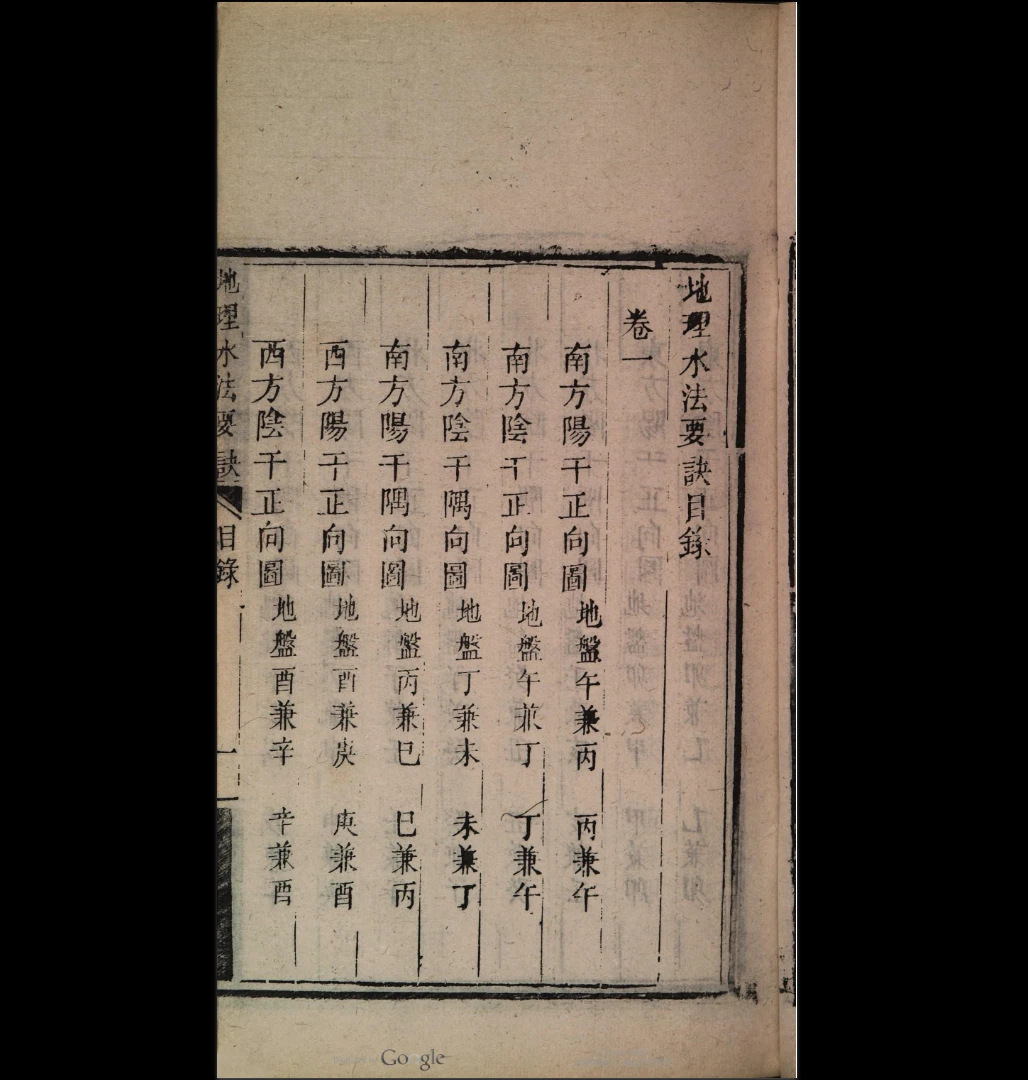 地理水法要訣目錄
卷一
南方陽干正向圖 地盤午兼丙 丙兼午
南方陰干正向圖 地盤午兼丁 丁兼午
南方陰干隅向圖 地盤丁兼未 未兼丁
南方陽干隅向圖 地盤丙兼巳 巳兼丙
西方陽干正向圖 地盤酉兼庚 庚兼酉
西方陰干正向圖 地盤酉兼辛 辛兼酉
地理水法要訣 目錄 一
Google